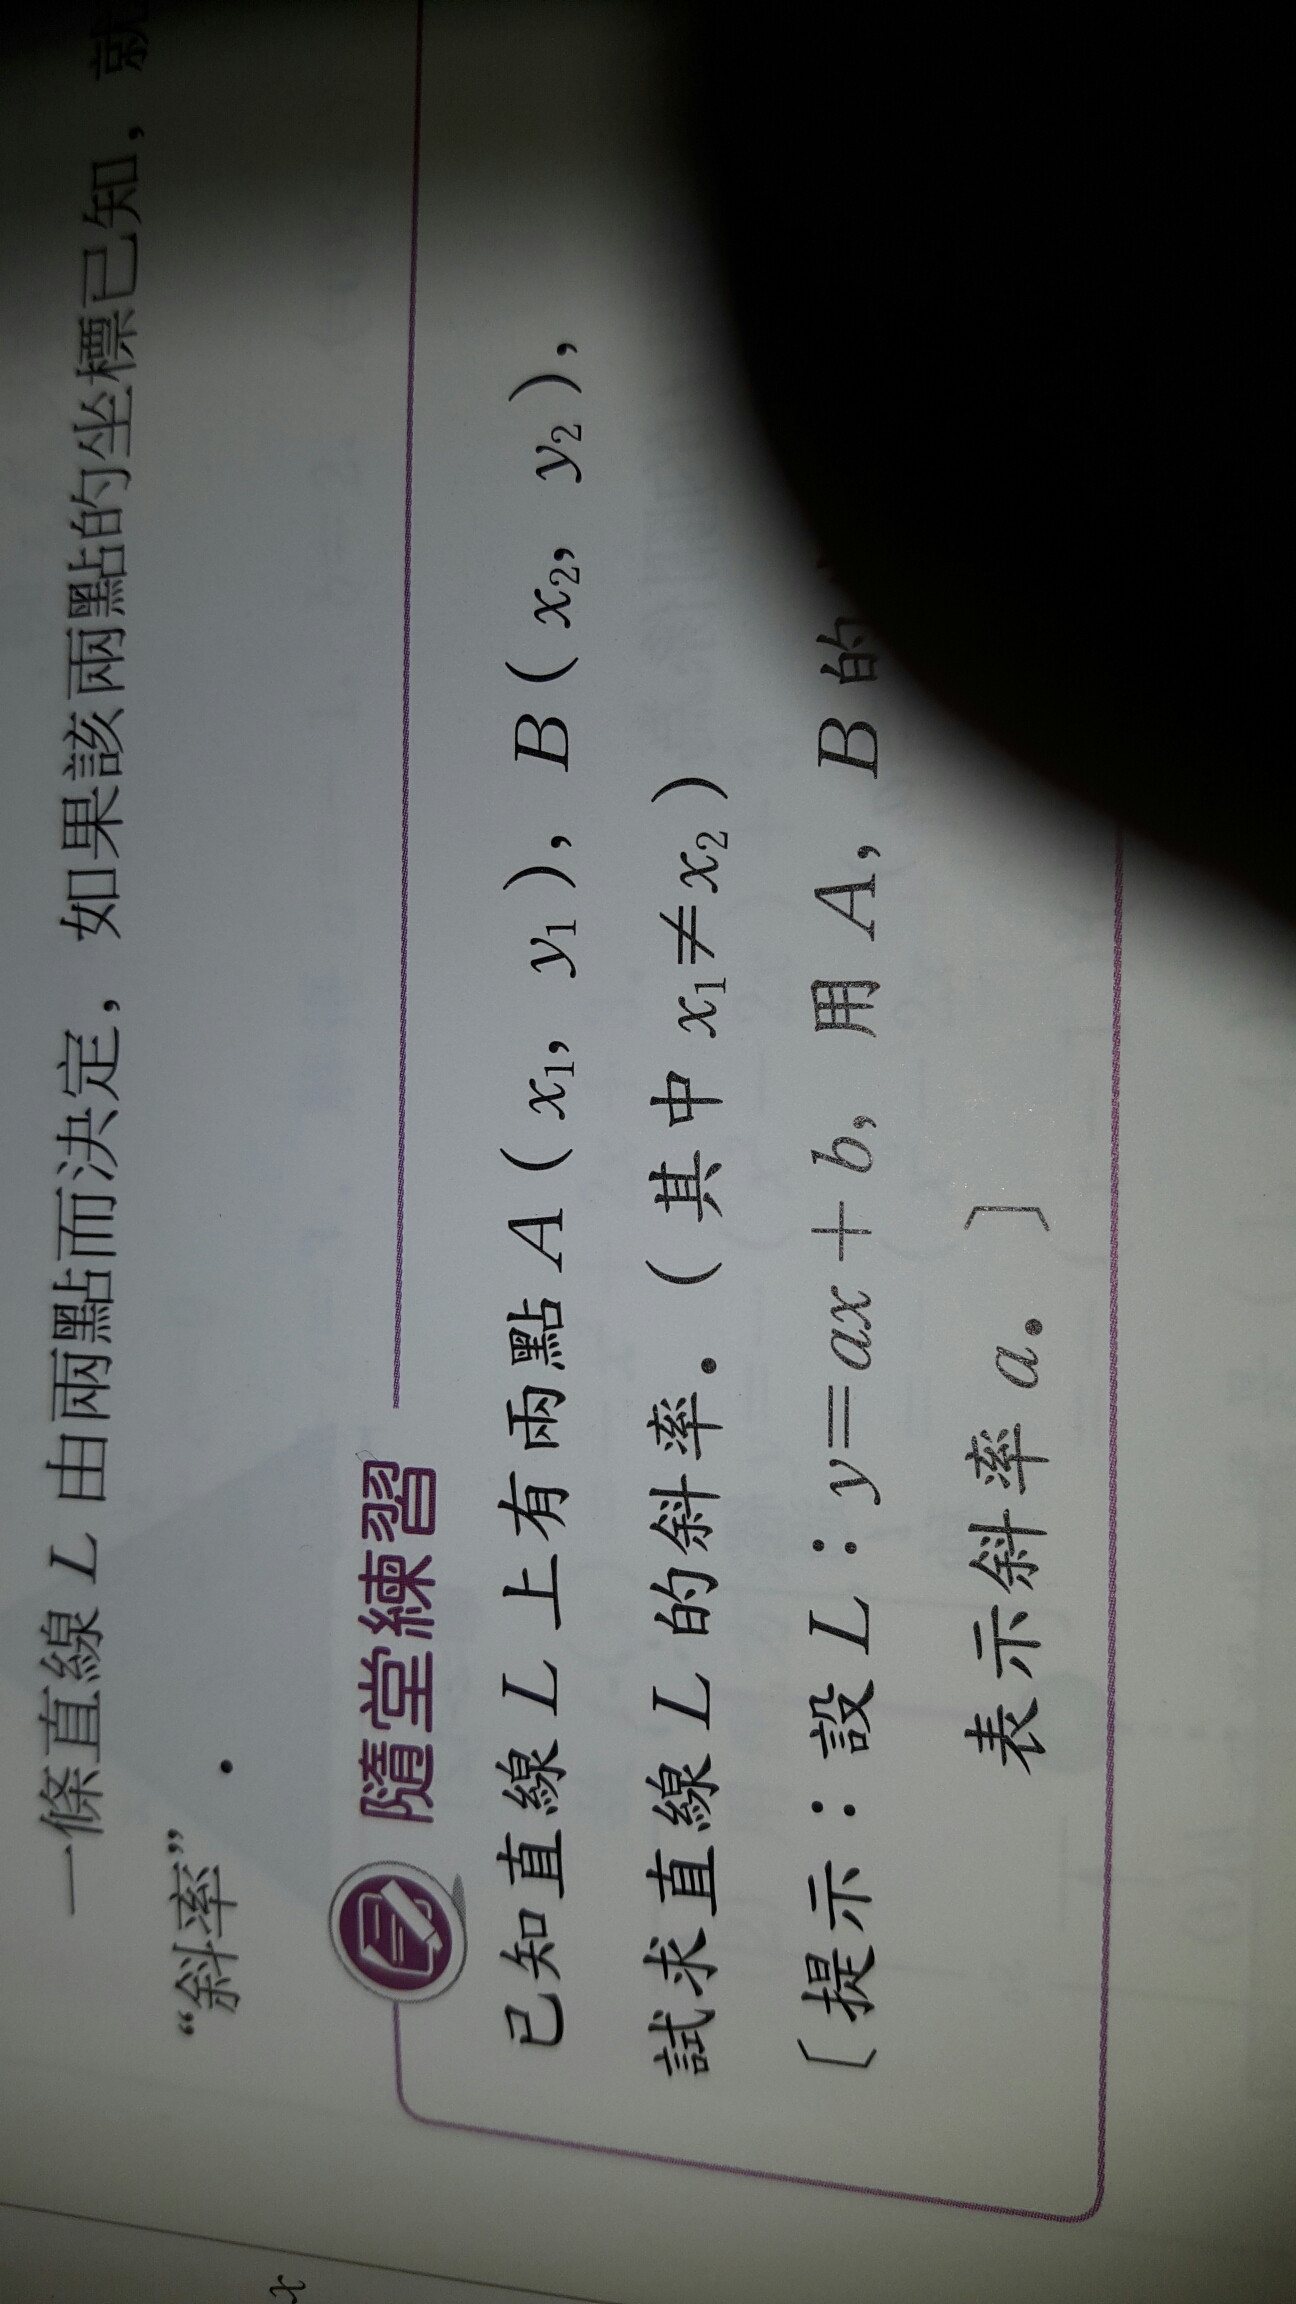 一條直線 L 由兩點而決定，如果該兩點的坐標已知，就
“斜率”．
隨堂練習
已知直線 L 上有兩點 A（x₁，y₁），B（x₂，y₂），
試求直線 L 的斜率．（其中 x₁≠x₂）
〔提示：設 L：y＝ax＋b，用 A，B 的
表示斜率 a．〕
x